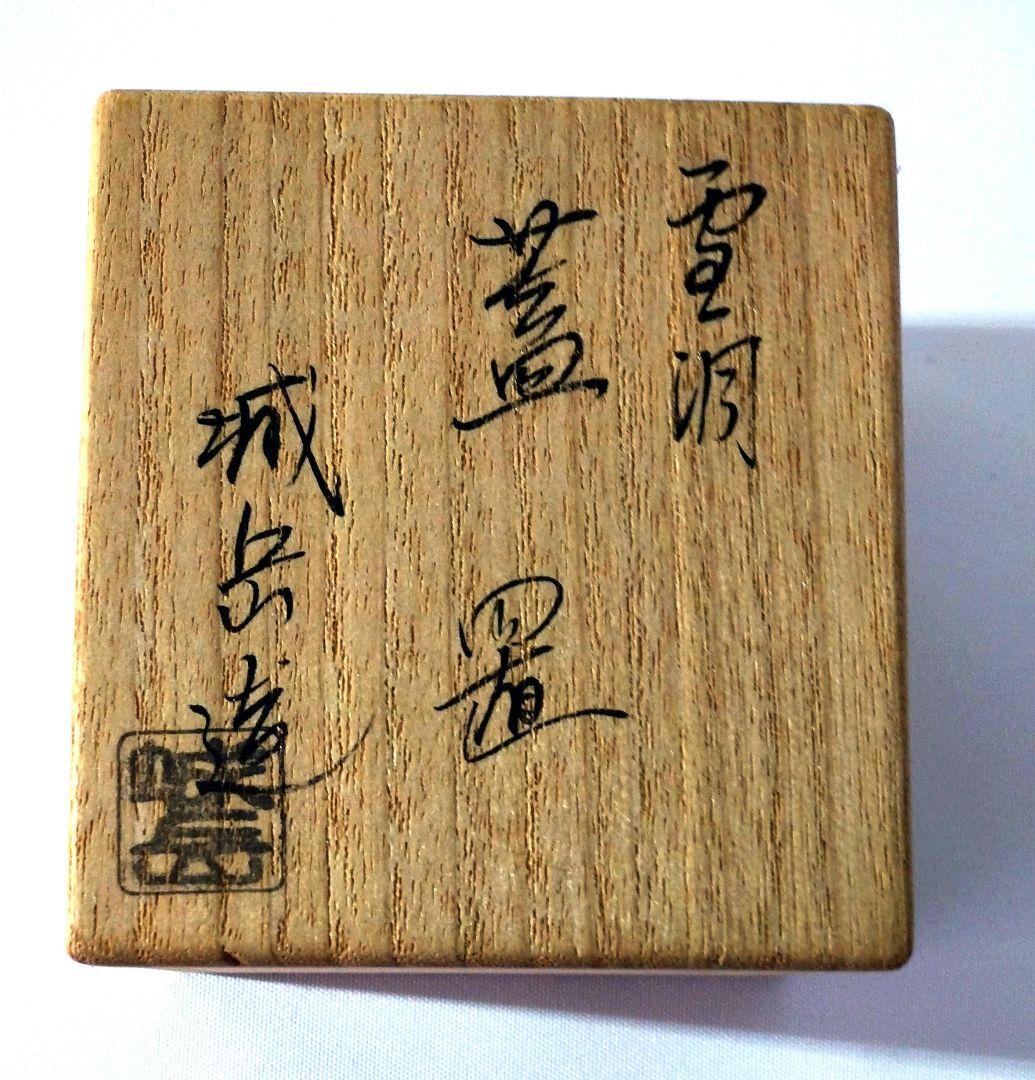 雪洞
蓋置
城岳造